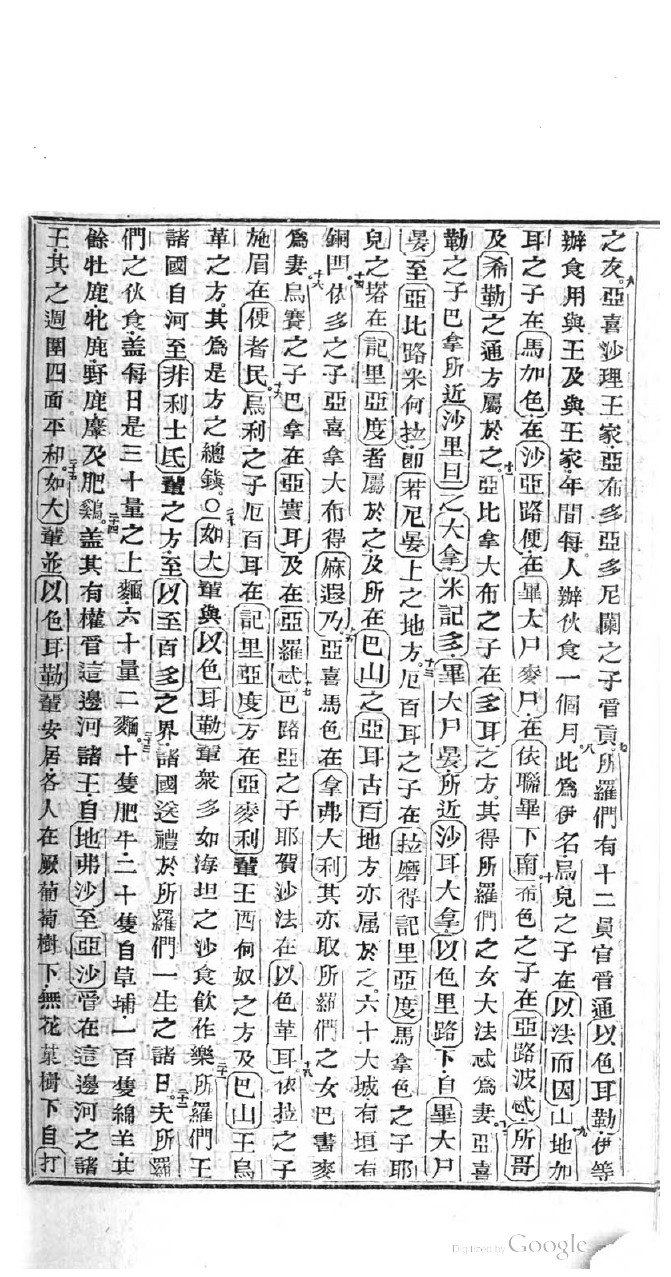 之友亞喜沙理王家亞布多亞多尼闌之子管貢所羅們有十二員官管通以色耳勒伊等
辦食用與王及與王家年間每人辦伙食一個月此爲伊名烏兒之子在以法而因山地加
耳之子在馬加色在沙亞路便在畢大尸麥尸在依聯畢下南希色之子在亞路波忒所哥
及希勒之通方屬於之亞比拿大布之子在多耳之方其得所羅們之女大法忒爲妻亞喜
勒之子巴拿所近沙里旦之大拿米記多畢大尸晏所近沙耳大拿以色里路下自畢大尸
晏至亞比路米何拉卽若尼晏上之地方厄百耳之子在拉磨得記里亞度馬拿色之子耶
兒之塔在記里亞度者屬於之及所在巴山之亞耳古百地方亦屬於之六十大城有垣有
銅閂依多之子亞喜拿大布得麻遐乃亞喜馬色在拿弗大利其亦取所羅們之女巴書麥
爲妻烏賽之子巴拿在亞實耳及在亞羅忒巴路亞之子耶賀沙法在以色革耳依拉之子
施眉在便者民烏利之子厄百耳在記里亞度方在亞麥利輩王西何奴之方及巴山王烏
革之方其爲是方之總鎮○如大輩與以色耳勒輩衆多如海坦之沙食飲作樂所羅們王
諸國自河至非利士氏輩之方至以至百多之界諸國送禮於所羅們一生之諸日夫所羅
們之伙食蓋每日是三十量之上麵六十量二麵十隻肥牛二十隻自草埔一百隻綿羊其
餘牡鹿牝鹿野鹿麞及肥鷄蓋其有權管這邊河諸王自地弗沙至亞沙管在這邊河之諸
王其之週圍四面平和如大輩並以色耳勒輩安居各人在厥葡萄樹下無花菓樹下自打
Digitized by Google